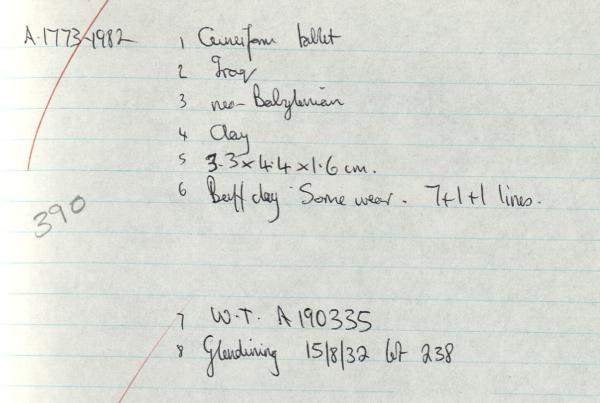 A.1773-1982 1 Cuneiform tablet
2 Iraq
3 neo-Babylonian
4 Clay
5 3.3x4.4x1.6 cm.
6 Buff clay Some wear. 7+1+1 lines.
390
7 W.T. A190335
8 Glendining 15/8/32 lot 238